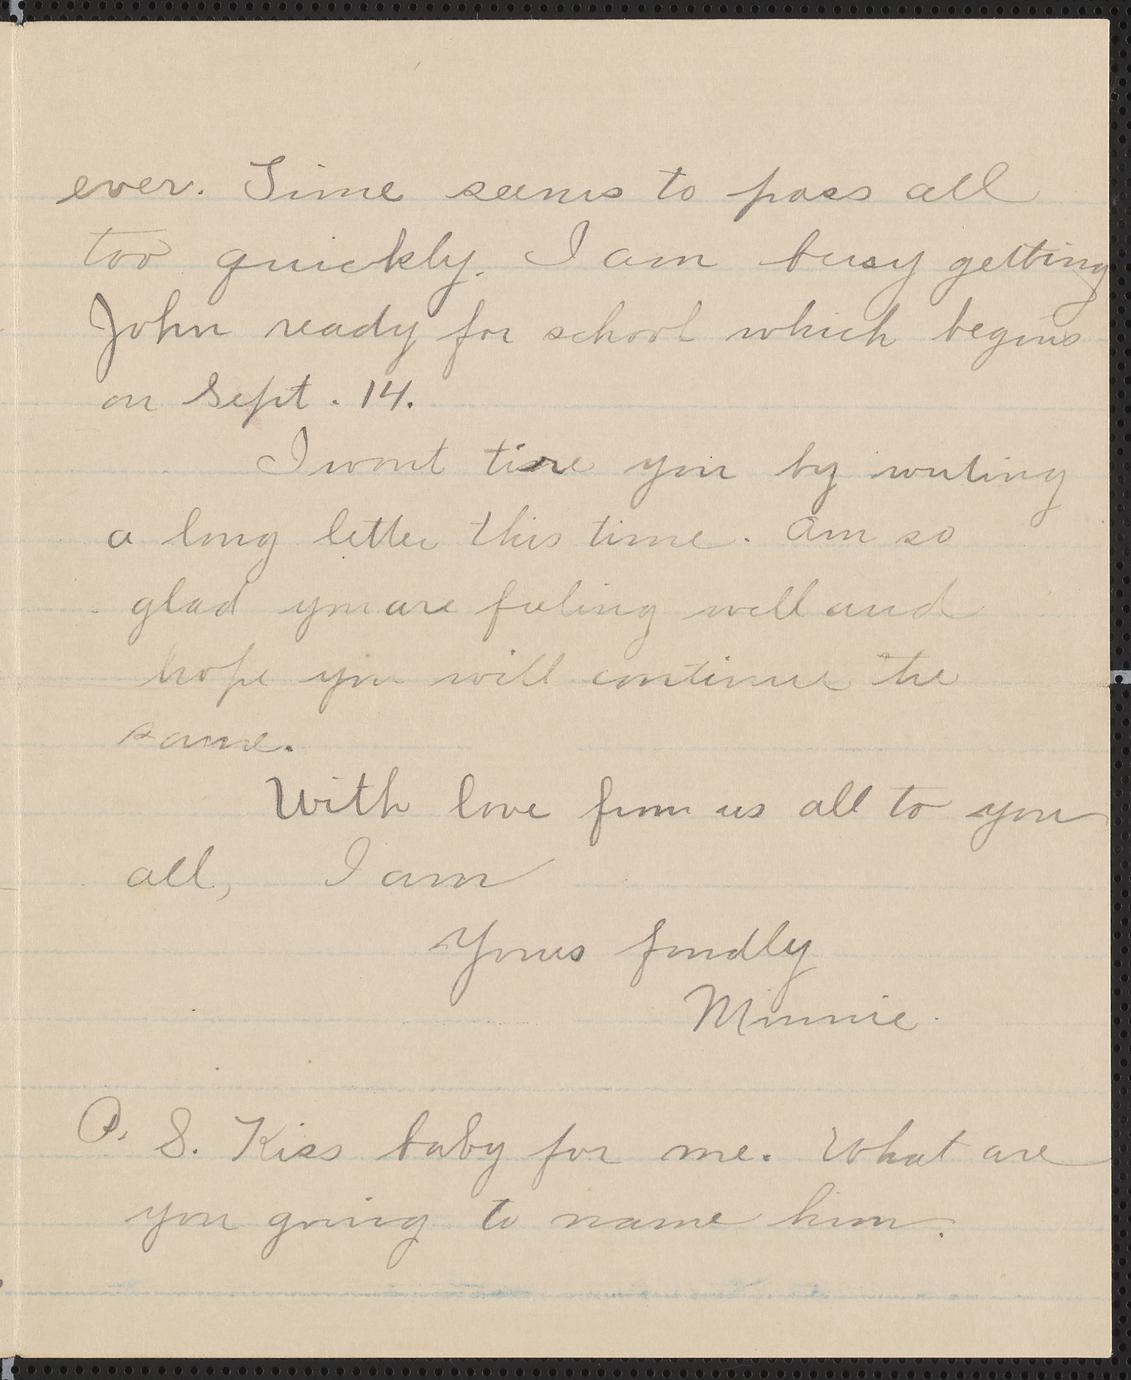 ever. Time seems to pass all
too quickly. I am busy getting
John ready for school which begins
on Sept. 14.
I wont tire you by writing
a long letter this time. Am so
glad you are feeling well and
hope you will continue the
same.
With love from us all to you
all, I am
Yours fondly
Minnie.
P. S. Kiss baby for me. What are
you going to name him.